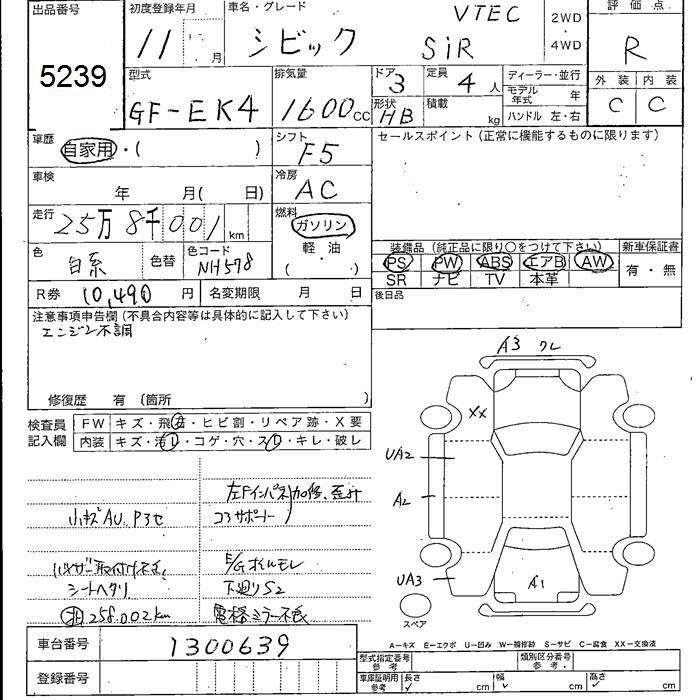 出品番号 初度登録年月 車名・グレード 評価点
5239 11 月 シビック VTEC SiR 2WD・4WD R
型式 排気量 ドア 定員 ディーラー・並行 外装 内装
GF-EK4 1600cc 3 4人 モデル年式 年 C C
形状 HB 積載 kg ハンドル 左・右
車歴 自家用・( ) シフト F5 セールスポイント(正常に機能するものに限ります)
車検 年 月( 日) 冷房 AC
走行 25万8千001km 燃料 ガソリン 軽・油 ( )
色 白系 色替 色コード NH578
装備品 (純正品に限り〇をつけて下さい) 新車保証書
PS PW ABS エアB AW 有・無
SR ナビ TV 本革
R券 10,490円 名変期限 月 日 後日品
注意事項申告欄(不具合内容等は具体的に記入して下さい)
エンジン不調
修復歴 有(箇所 )
検査員記入欄 FW キズ・飛石・ヒビ割・リペア跡・X要
内装 キズ・汚レ・コゲ・穴・スレ・キレ・破レ
左Fインパネ加修、歪み
小キズAU P3セ コアサポート
取付け E/Gオイルモレ
シートヘタリ 下廻りS2
258,002km 電格ミラー不良
A3 ワレ
XX
UA2
A2
UA3
A1
スペア
車台番号 1300639
登録番号
A−キズ E−エクボ U−凹み W−補修跡 S−サビ C−腐食 XX−交換済
型式指定番号 参考 類別区分番号 参考
車庫証明用 参考 長さ cm 幅 cm 高さ cm